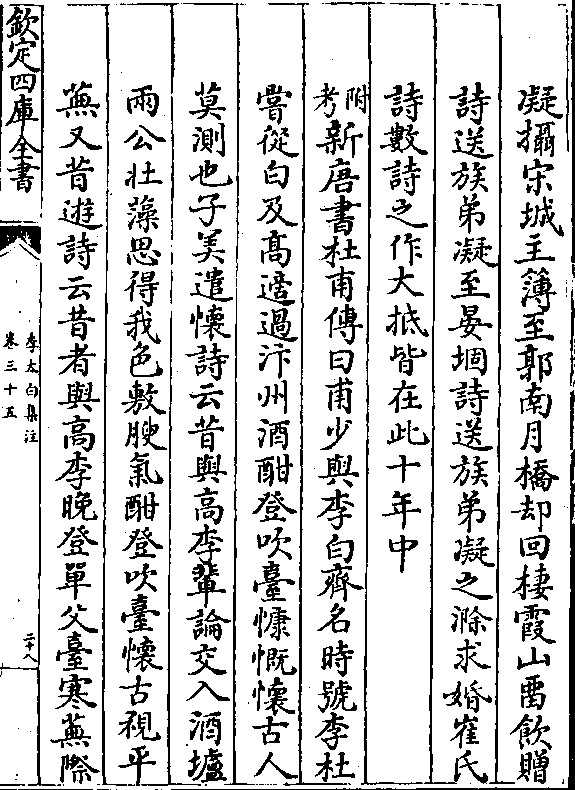 凝攝宋城主簿至郭南月橋却回棲霞山留飲贈
詩送族弟凝至晏堌詩送族弟凝之滁求婚崔氏
詩數詩之作大抵皆在此十年中
附考新唐書杜甫傳曰甫少與李白齊名時號李杜
嘗從白及高適過汴州酒酣登吹臺慷慨懷古人
莫測也子美遣懷詩云昔與高李輩論交入酒壚
兩公壯藻思得我色敷腴氣酣登吹臺懷古視平
蕪又昔遊詩云昔者與高李晚登單父臺寒蕪際
欽定四庫全書
李太白集注
卷三十五
二十八